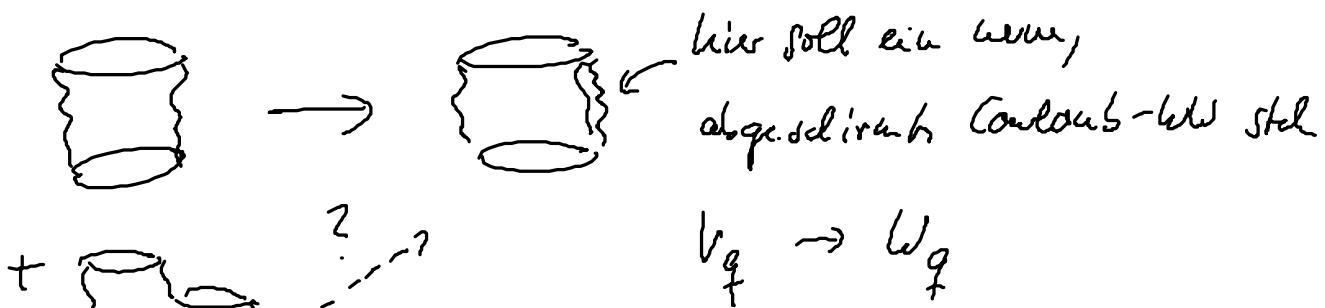 hier soll ein neues,
abgeschirmtes Coulomb-WW stehen
?
V_q → W_q
+